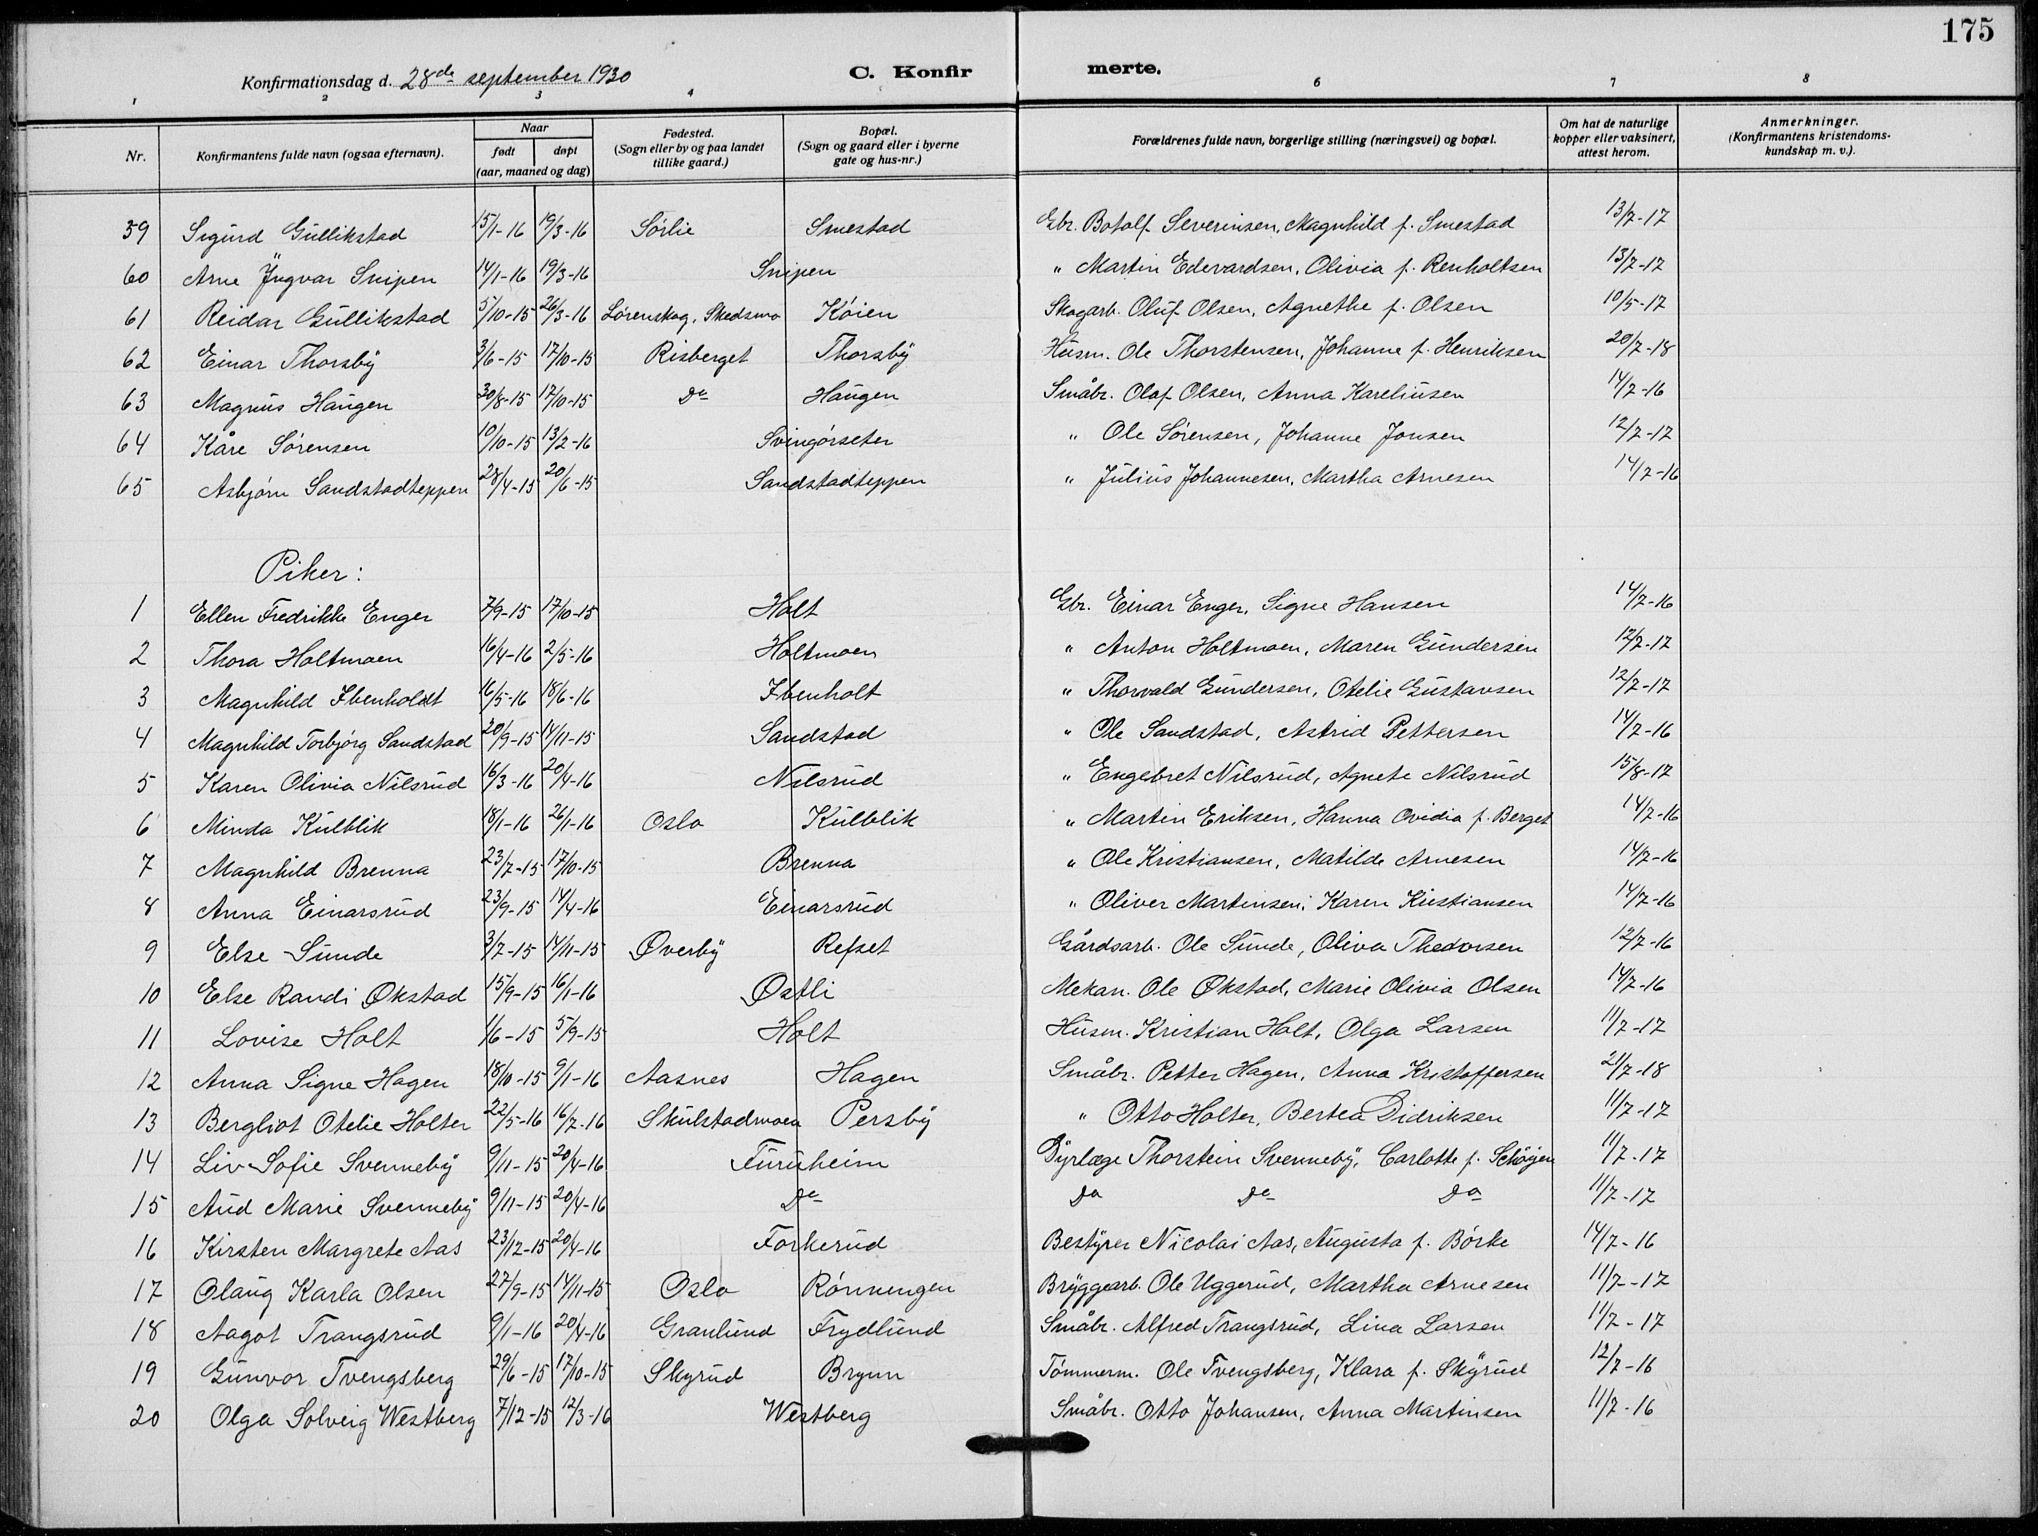 175
Konfirmationsdag d. 28de september 1930 C. Konfir merte.
1 2 3 4 6 7 8
Nr. Konfirmantens fulde navn (ogsaa efternavn). Naar født døpt (aar, maaned og dag) Fødested. (Sogn eller by og paa landet tillike gaard.) Bopæl. (Sogn og gaard eller i byerne gate og hus-nr.) Forældrenes fulde navn, borgerlige stilling (næringsvei) og bopæl. Om hat de naturlige kopper eller vaksinert, attest herom. Anmerkninger. (Konfirmantens kristendoms-kundskap m. v.).
59 Sigurd Gullikstad 15/1-16 19/3-16 Sørlie Smestad Gbr. Botolf Severinsen, Magnhild f. Smestad 13/7-17
60 Arne Yngvar Snipen 14/1-16 19/3-16 Snipen " Martin Edevardsen, Olivia f. Renholtsen 13/7-17
61 Reidar Gullikstad 5/10-15 26/3-16 Lørenskog, Skedsmo Køien Skogarb. Oluf Olsen, Agnethe f. Olsen 10/5-17
62 Einar Thorsby 3/6-15 17/10-15 Risberget Thorsby Husm. Ole Thorstensen, Johanne f. Henriksen 20/7-18
63 Magnus Haugen 30/8-15 17/10-15 Do Haugen Småbr. Olaf Olsen, Anna Kareliusen 14/7-16
64 Kåre Sørensen 10/10-15 13/2-16 Svingørseter " Ole Sørensen, Johanne Jonsen 12/7-17
65 Asbjørn Sandstadteppen 28/4-15 20/6-15 Sandstadteppen " Julius Johannesen, Martha Arnesen 14/7-16
Piker:
1 Ellen Fredrikke Enger 7/9-15 17/10-15 Holt Gbr. Einar Enger, Signe Hansen 14/7-16
2 Thora Holtmoen 16/4-16 2/5-16 Holtmoen " Anton Holtmoen, Maren Gundersen 12/7-17
3 Magnhild Ibenholdt 16/5-16 18/6-16 Ibenholt " Thorvald Gundersen, Otelie Gustavsen 12/7-17
4 Magnhild Torbjørg Sandstad 20/9-15 14/11-15 Sandstad " Ole Sandstad, Astrid Pettersen 14/7-16
5 Karen Olivia Nilsrud 16/3-16 20/4-16 Nilsrud " Engebret Nilsrud, Agnete Nilsrud 15/8-17
6 Minda Kulblik 18/1-16 26/1-16 Oslo Kulblik " Martin Eriksen, Hanna Ovidia f. Berget 14/7-16
7 Magnhild Brenna 23/7-15 17/10-15 Brenna " Ole Kristiansen, Matilde Arnesen 14/7-16
8 Anna Einarsrud 23/9-15 14/4-16 Einarsrud " Oliver Martinsen, Karen Kristiansen 14/7-16
9 Else Sunde 3/7-15 14/11-15 Øverby Refset Gårdsarb. Ole Sunde, Oliva Thedorsen 12/7-16
10 Else Randi Økstad 15/9-15 16/1-16 Østli Mekan. Ole Økstad, Marie Olivia Olsen 14/7-16
11 Lovise Holt 1/6-15 5/9-15 Holt Husm. Kristian Holt, Olga Larsen 11/7-17
12 Anna Signe Hagen 18/10-15 9/1-16 Aasnes Hagen Småbr. Petter Hagen, Anna Kristoffersen 21/7-18
13 Bergliot Otelie Holter 22/5-16 16/7-16 Skulstadmoen Persby " Otto Holter, Bertea Didriksen 11/7-17
14 Liv Sofie Svenneby 9/11-15 20/4-16 Furuheim Dyrlæge Thorstein Svenneby, Carlotte f. Schøyen 11/7-17
15 Aud Marie Svenneby 9/11-15 20/4-16 Do Do Do Do 11/7-17
16 Kirsten Margrete Aas 23/12-15 20/4-16 Forkerud Bestyrer Nicolai Aas, Augusta f. Børke 14/7-16
17 Olaug Karla Olsen 27/9-15 14/11-15 Oslo Rønnengen Bryggearb. Ole Uggerud, Martha Arnesen 11/7-17
18 Aagot Trangsrud 9/1-16 20/4-16 Granlund Frydlund Småbr. Alfred Trangsrud, Lina Larsen 11/7-17
19 Gunvor Tvengsberg 29/6-15 17/10-15 Skyrud Brynn Tømmerm. Ole Tvengsberg, Klara f. Skyrud 12/7-16
20 Olga Solveig Westberg 7/12-15 12/3-16 Westberg Småbr. Otto Johansen, Anna Martinsen 11/7-16